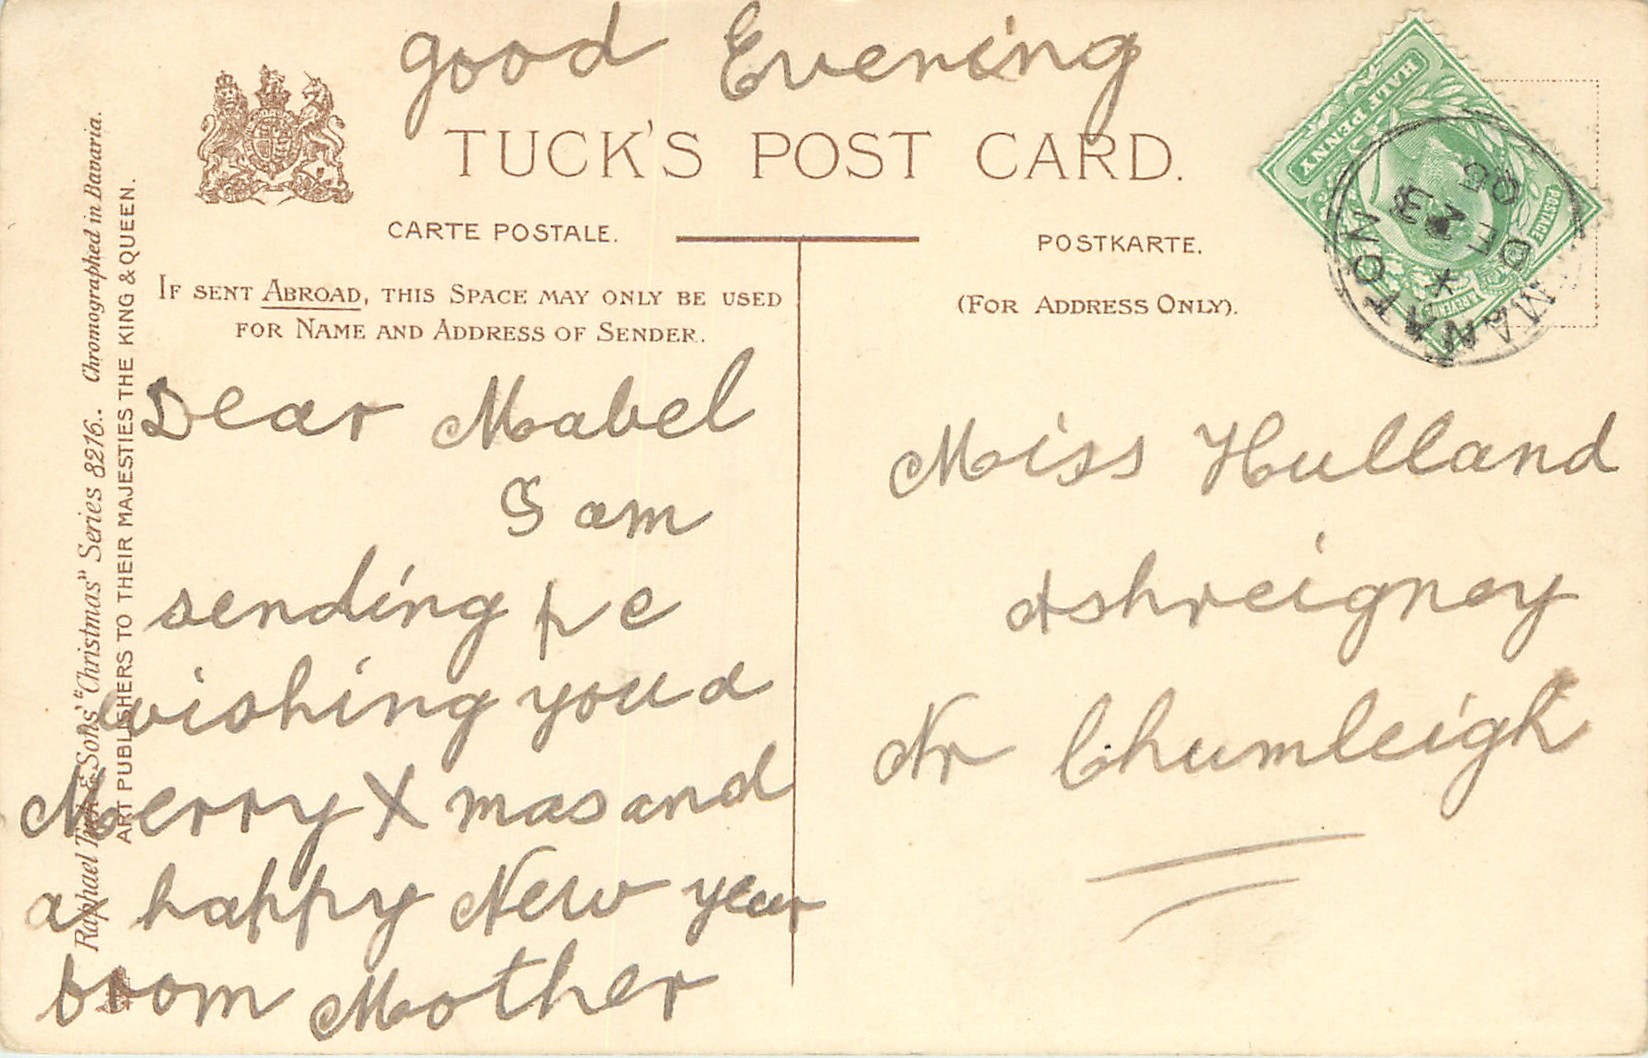 good Evening
TUCK'S POST CARD.
CARTE POSTALE.
POSTKARTE.
IF SENT ABROAD, THIS SPACE MAY ONLY BE USED
FOR NAME AND ADDRESS OF SENDER.
(FOR ADDRESS ONLY).
Dear Mabel
I am
sending pc
wishing you a
Merry X mas and
a happy New year
from Mother
Miss Hulland
Ashreigney
Nr Chumleigh
Raphael Tuck & Sons' "Christmas" Series 8216. Chromographed in Bavaria.
ART PUBLISHERS TO THEIR MAJESTIES THE KING & QUEEN.
HALF PENNY
POSTAGE
MANATON
DE 23
05